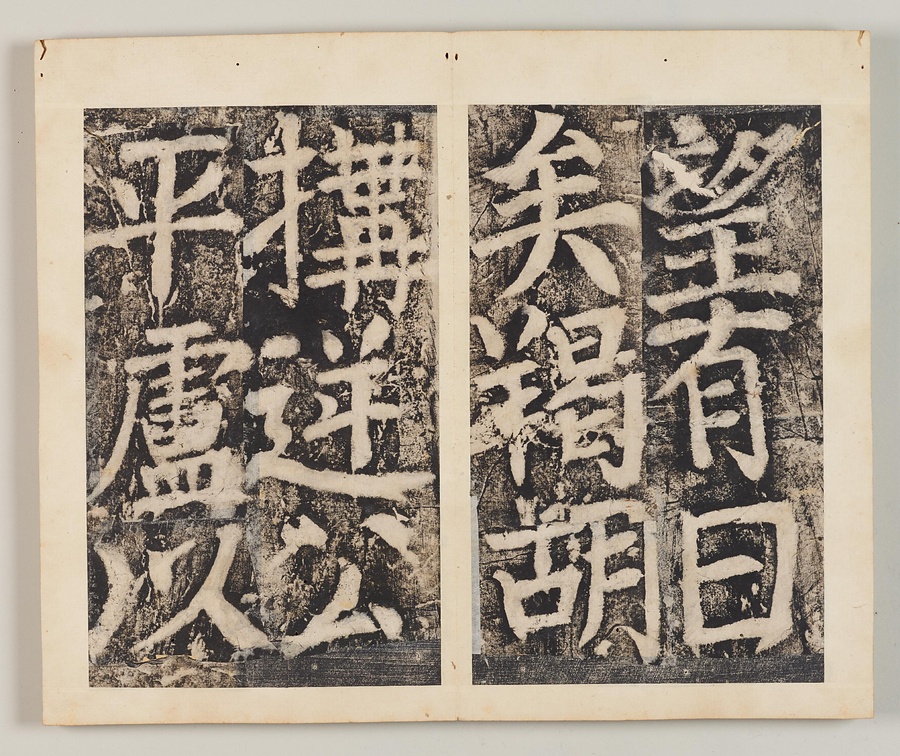 望有日
矣羯胡
搆逆公
平盧以